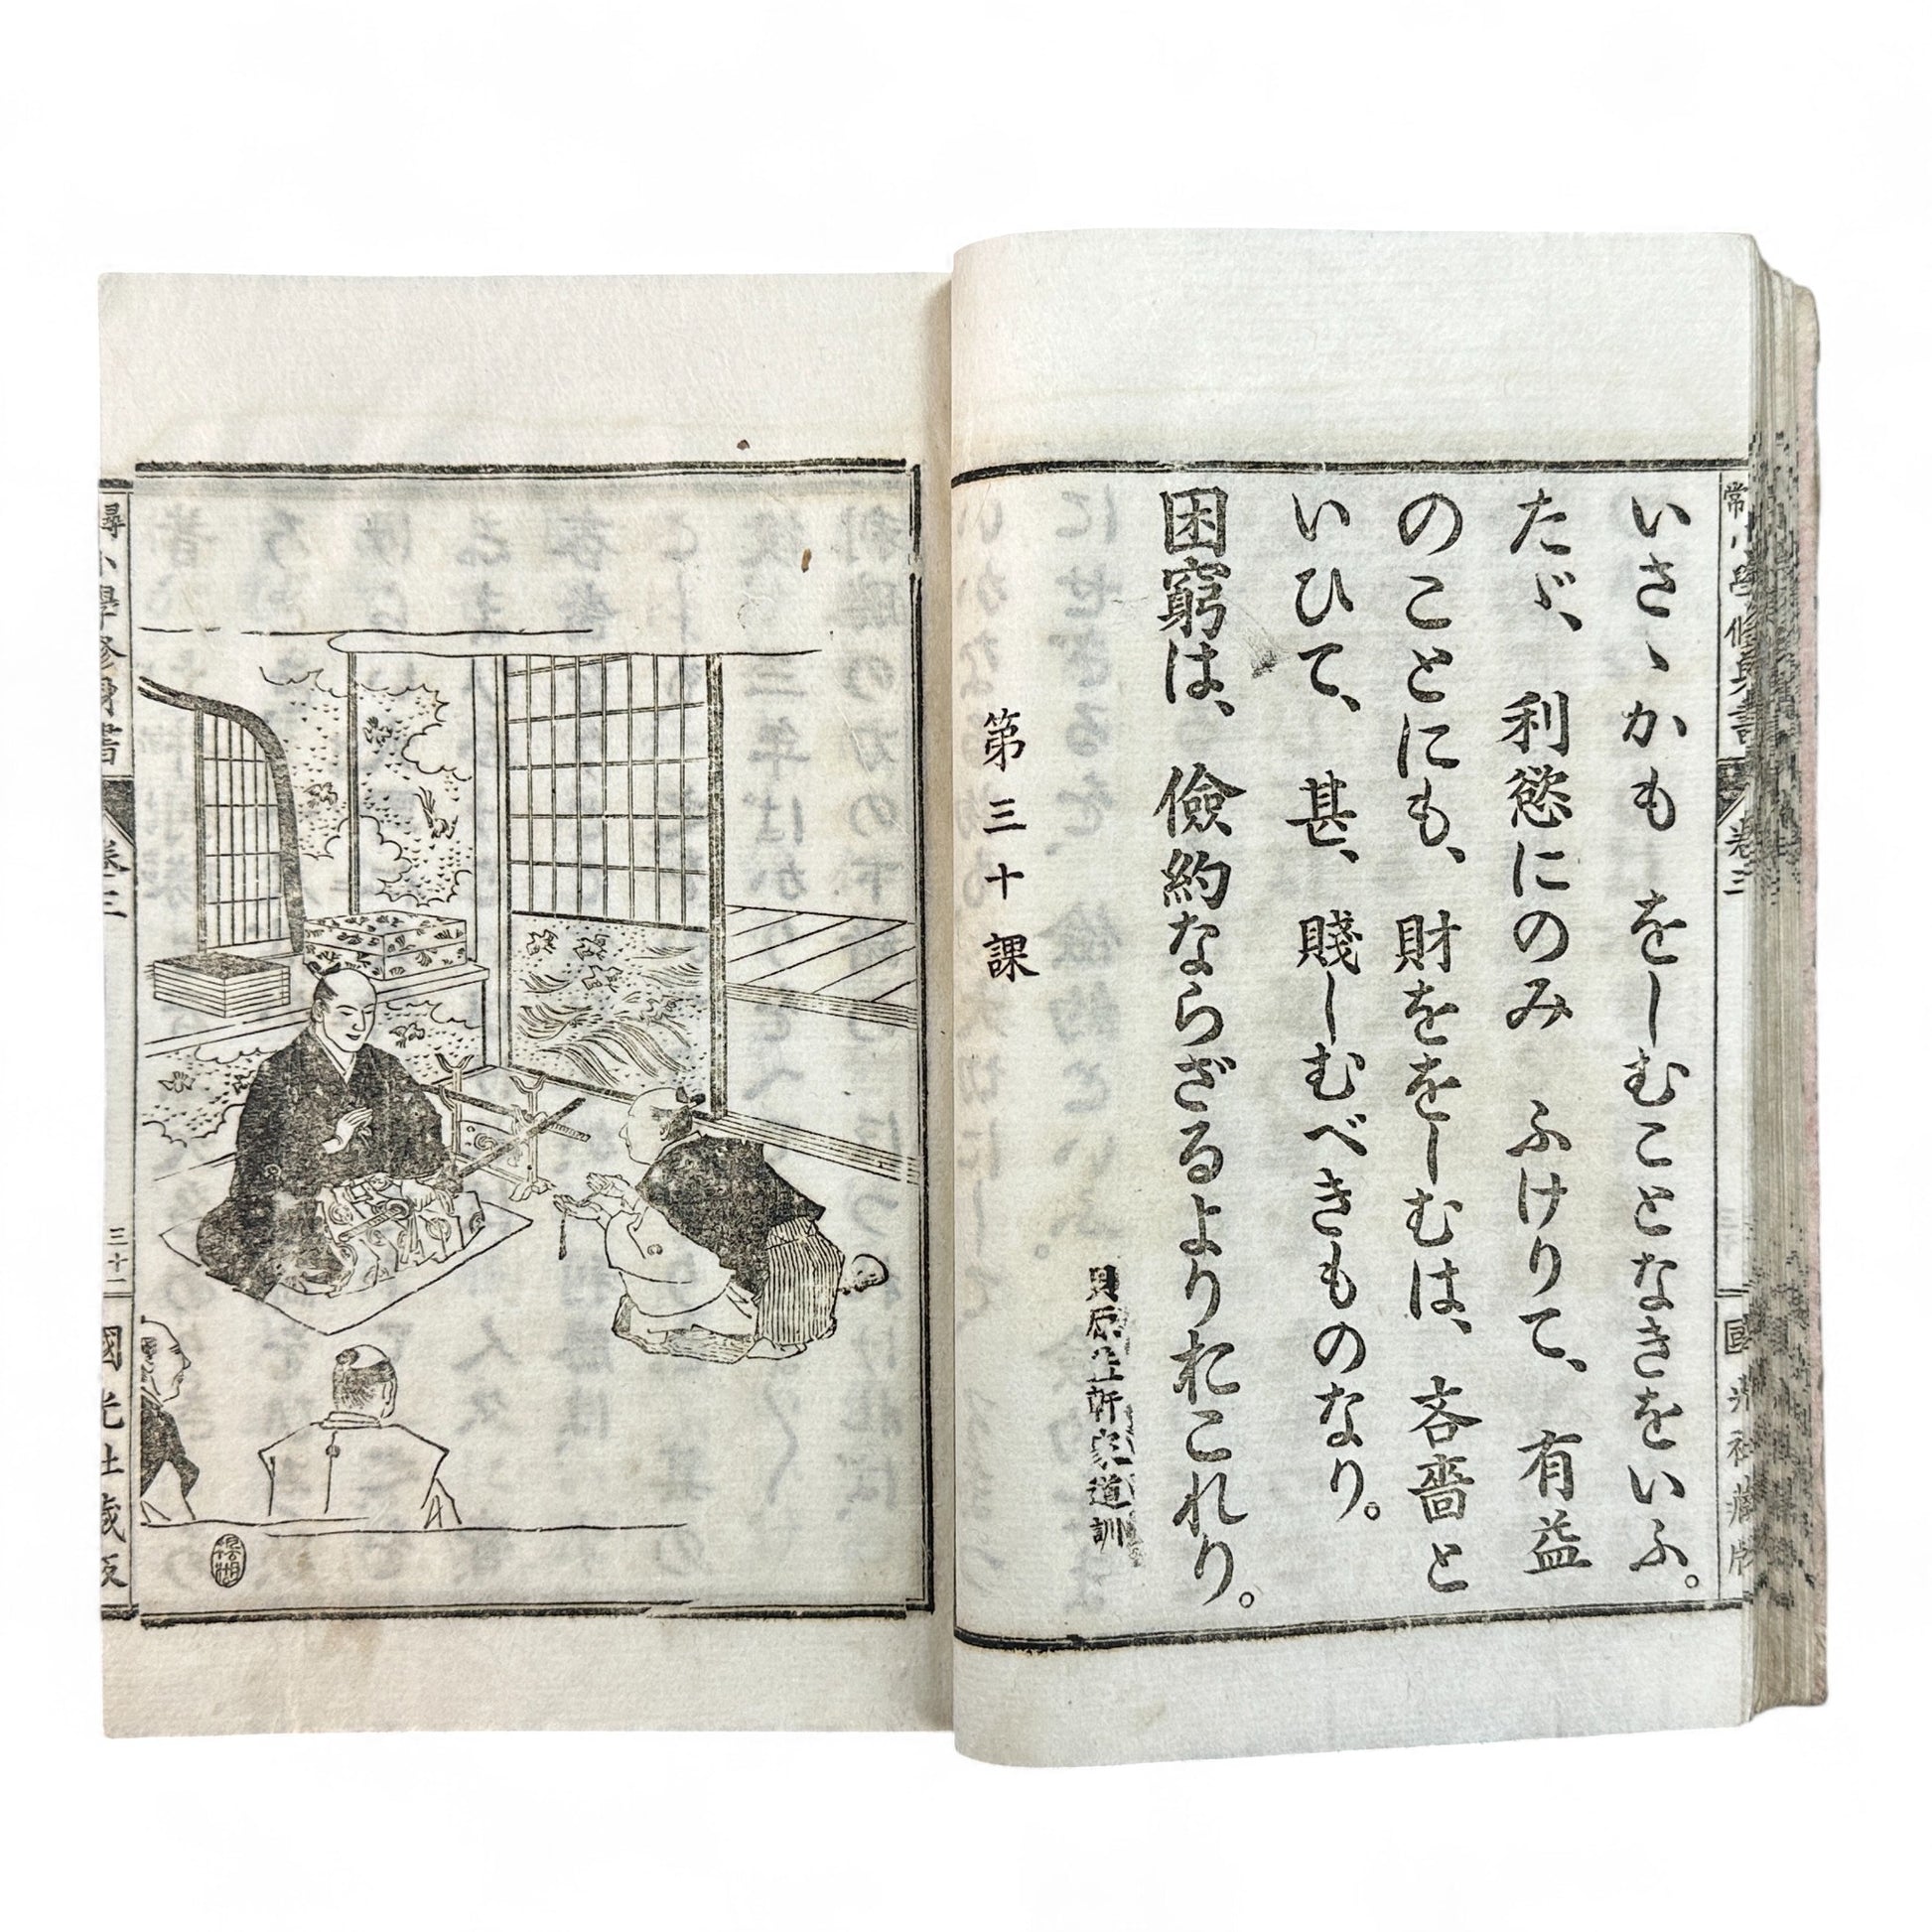 いさゝかも をしむことなきをいふ。
たゞ、利慾にのみ ふけりて、有益
のことにも、財ををしむは、吝嗇と
いひて、甚、賤しむべきものなり。
困窮は、儉約ならざるよりおこれり。
貝原益軒家道訓
第三十課
尋常小學修身書
卷三
三十二
國光社藏版